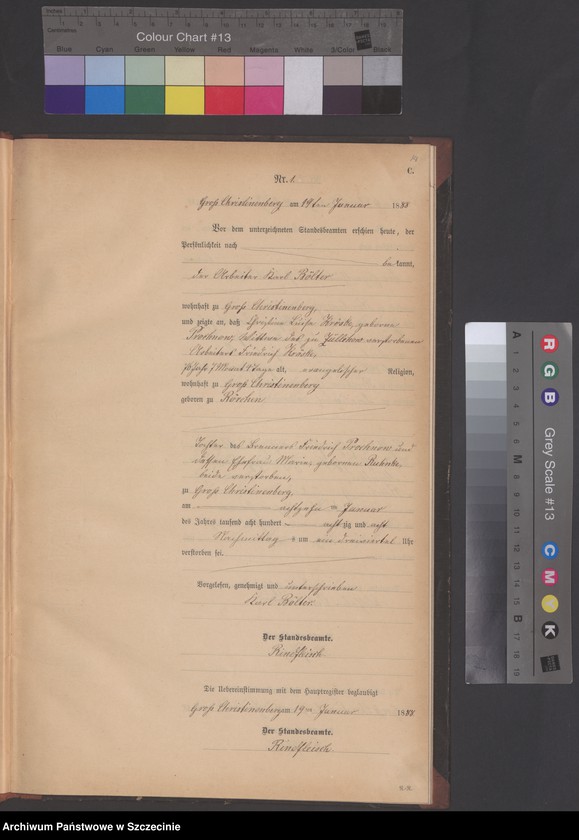 Colour Chart #13
Blue Cyan Green Yellow Red Magenta White 3/Color Black
C.
Nr. 1.
Groß Christinenberg am 19ten Januar 1888
Vor dem unterzeichneten Standesbeamten erschien heute, der
Persönlichkeit nach
be kannt,
der Arbeiter Karl Bölter
wohnhaft zu Groß Christinenberg,
und zeigte an, daß Christine Luise Kröske, geborene
Prochnow, Wittwe des zu Züllchow verstorbenen
Arbeiters Friedrich Kröske,
7 Monat Tage alt, evangelischer Religion,
wohnhaft zu Groß Christinenberg
geboren zu Rörchen
Tochter des Friedrich Prochnow und
dessen Ehefrau Marie, geborenen
beide verstorben,
zu Groß Christinenberg
am achtzehnten Januar
des Jahres tausend acht hundert achtzig und acht
Nachmittag s um ein dreiviertel Uhr
verstorben sei.
Vorgelesen, genehmigt und unterschrieben
Karl Bölter.
Der Standesbeamte.
Rindfleisch
Die Uebereinstimmung mit dem Hauptregister beglaubigt
Groß Christinenberg am 19ten Januar 1888
Der Standesbeamte.
Rindfleisch.
Grey Scale #13
A 1 2 3 4 5 6 M 8 9 10 11 12 13 14 15 B 17 18 19
R G B
C M Y K
Archiwum Państwowe w Szczecinie